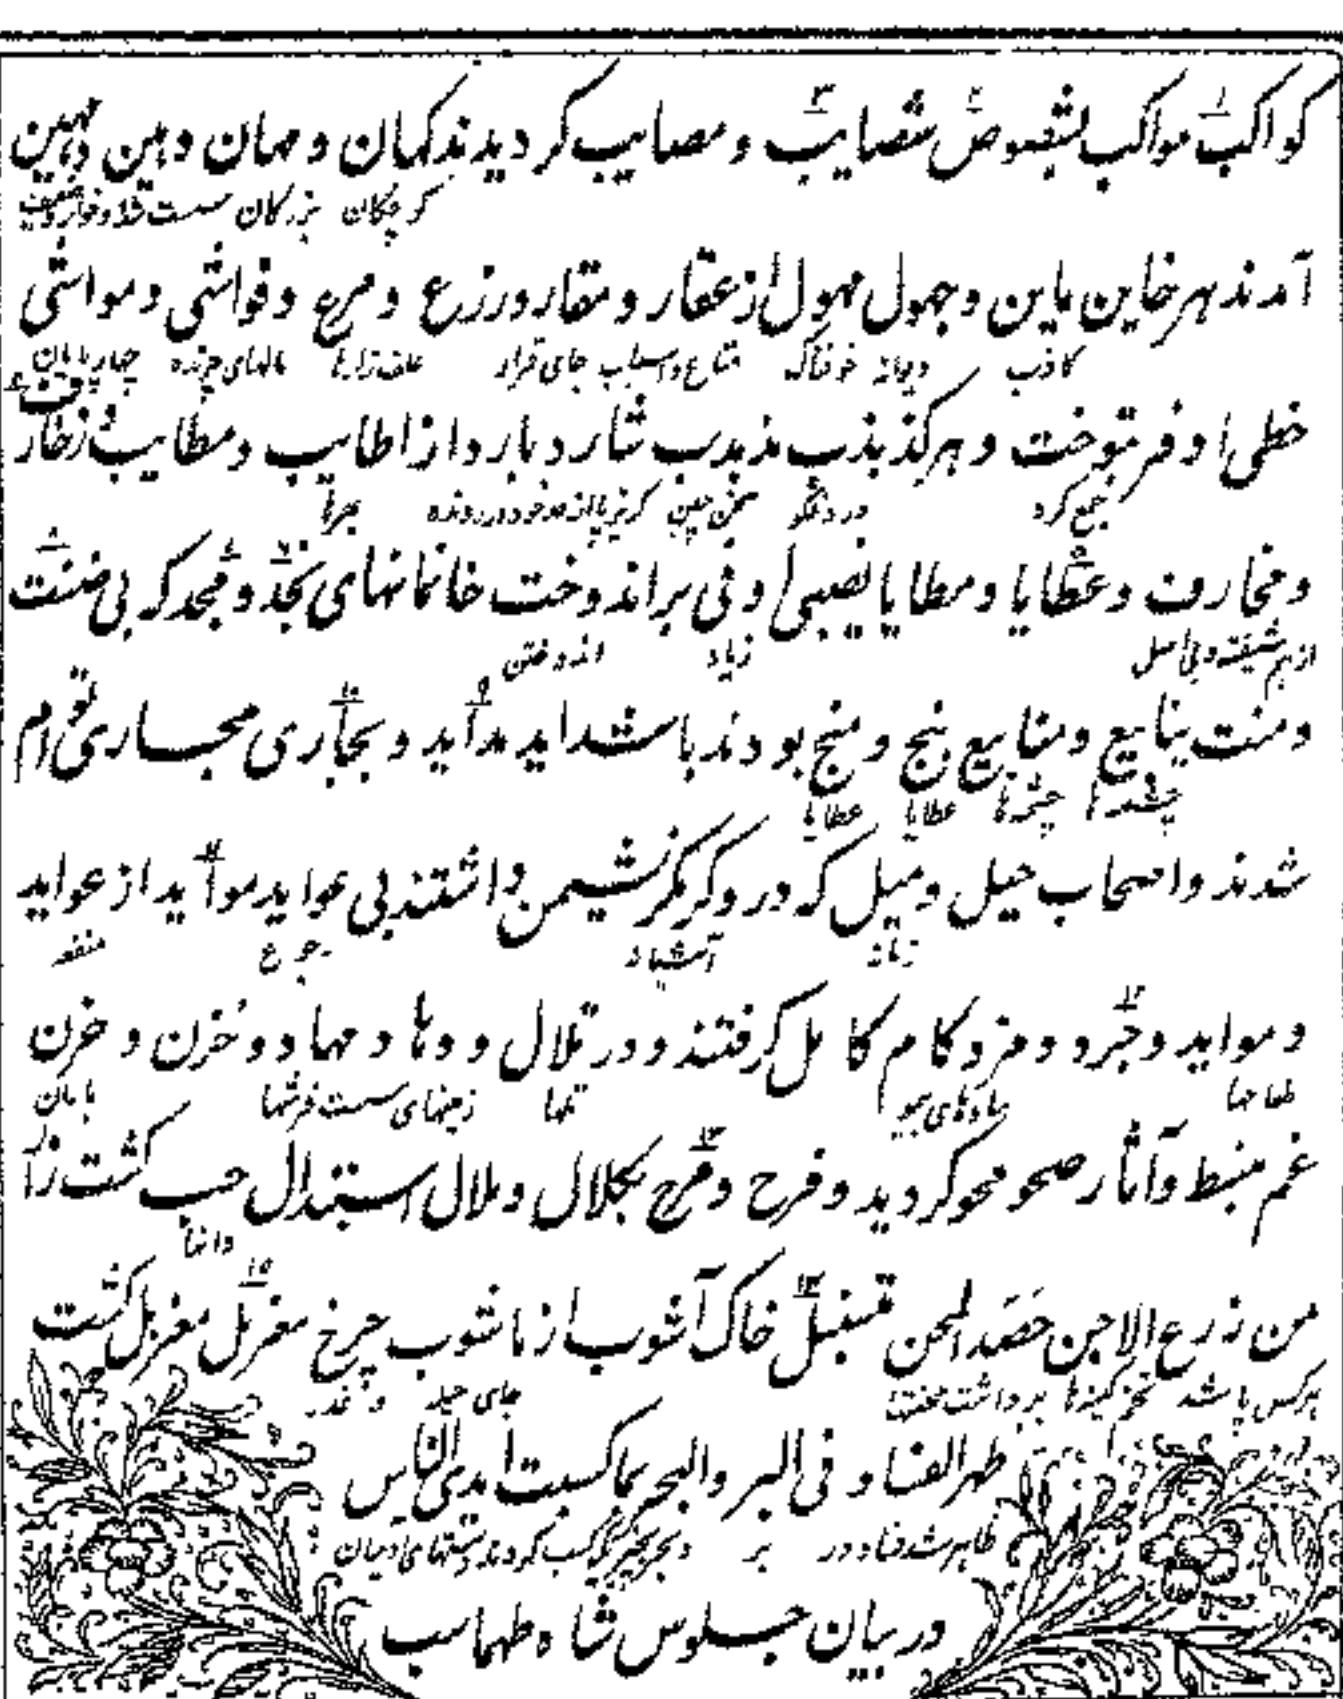 کواکب مواکب بشصوص شصایب و مصایب کردیدند کهان و مهان وهین و مهین
کوچکان بزرکان سست
آمدند هر خاین باین و جهول مهول از عقار و مقار و زرع و مرع و فواشی و مواشی
کاذب دیوانه خوفناک متاع و اسباب جای قرار علف زارها مالهای چرنده چهارپایان
خطی اوفر توخت و هر مذبذب شارد بارد از اطایب و مطایب
جمع کرد دروغگو سخن چین بهره
و مخارف و عطایا و مطایا نصیبی اوفی براندوخت خانمانهای نجد و مجد که بی ضنت
زیاد اندوختن
و منت ینابیع و منابیع بنج و منج بودند با شداید مدآید و بجآری مجاری توام
چشمه ها چشمه ها عطایا عطایا
شدند و اصحاب حیل و میل که در وکر مکر نشیمن داشتند بی عواید موآید از عواید
زمانه آشیانه رجوع منفعه
و مواید و جرد و مرد کام کامل گرفتند و در تلال و وهاد و مهاد و حزن و خزن
طعامها تلها زمینهای سست فرشها بابان
غم منبط و آثار صحو محو کردید و فرح و مرح بکلال و ملال استبدال جست
دانها
من زرع الاحن حصد المحن خاک آشوب از ماشوب چرخ مغربل مغربل کشت
هرکس پاشد تخم کینه‌ها برداشت محنتها جای حیله و غدر
ظهر الفساد فی البر والبحر بما کسبت ایدی الناس
ظاهر شد فساد در بر و بحر کسب کردند دستهای آدمیان
در بیان جلوس شاه طهماسب